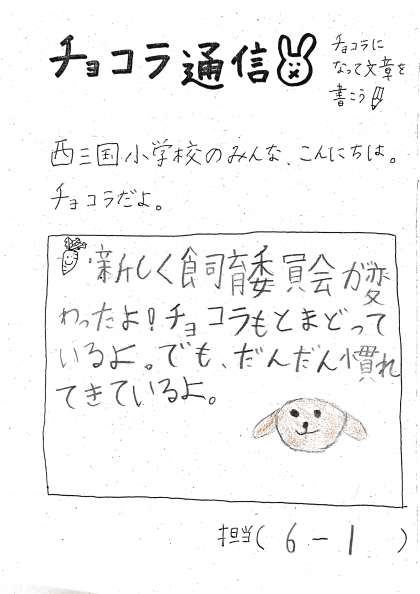 チョコラ通信
チョコラに
なって文章を
書こう
西三国小学校のみんな、こんにちは。
チョコラだよ。
新しく飼育委員会が変
わったよ！チョコラもとまどって
いるよ。でも、だんだん慣れ
てきているよ。
担当（ 6－1 ）